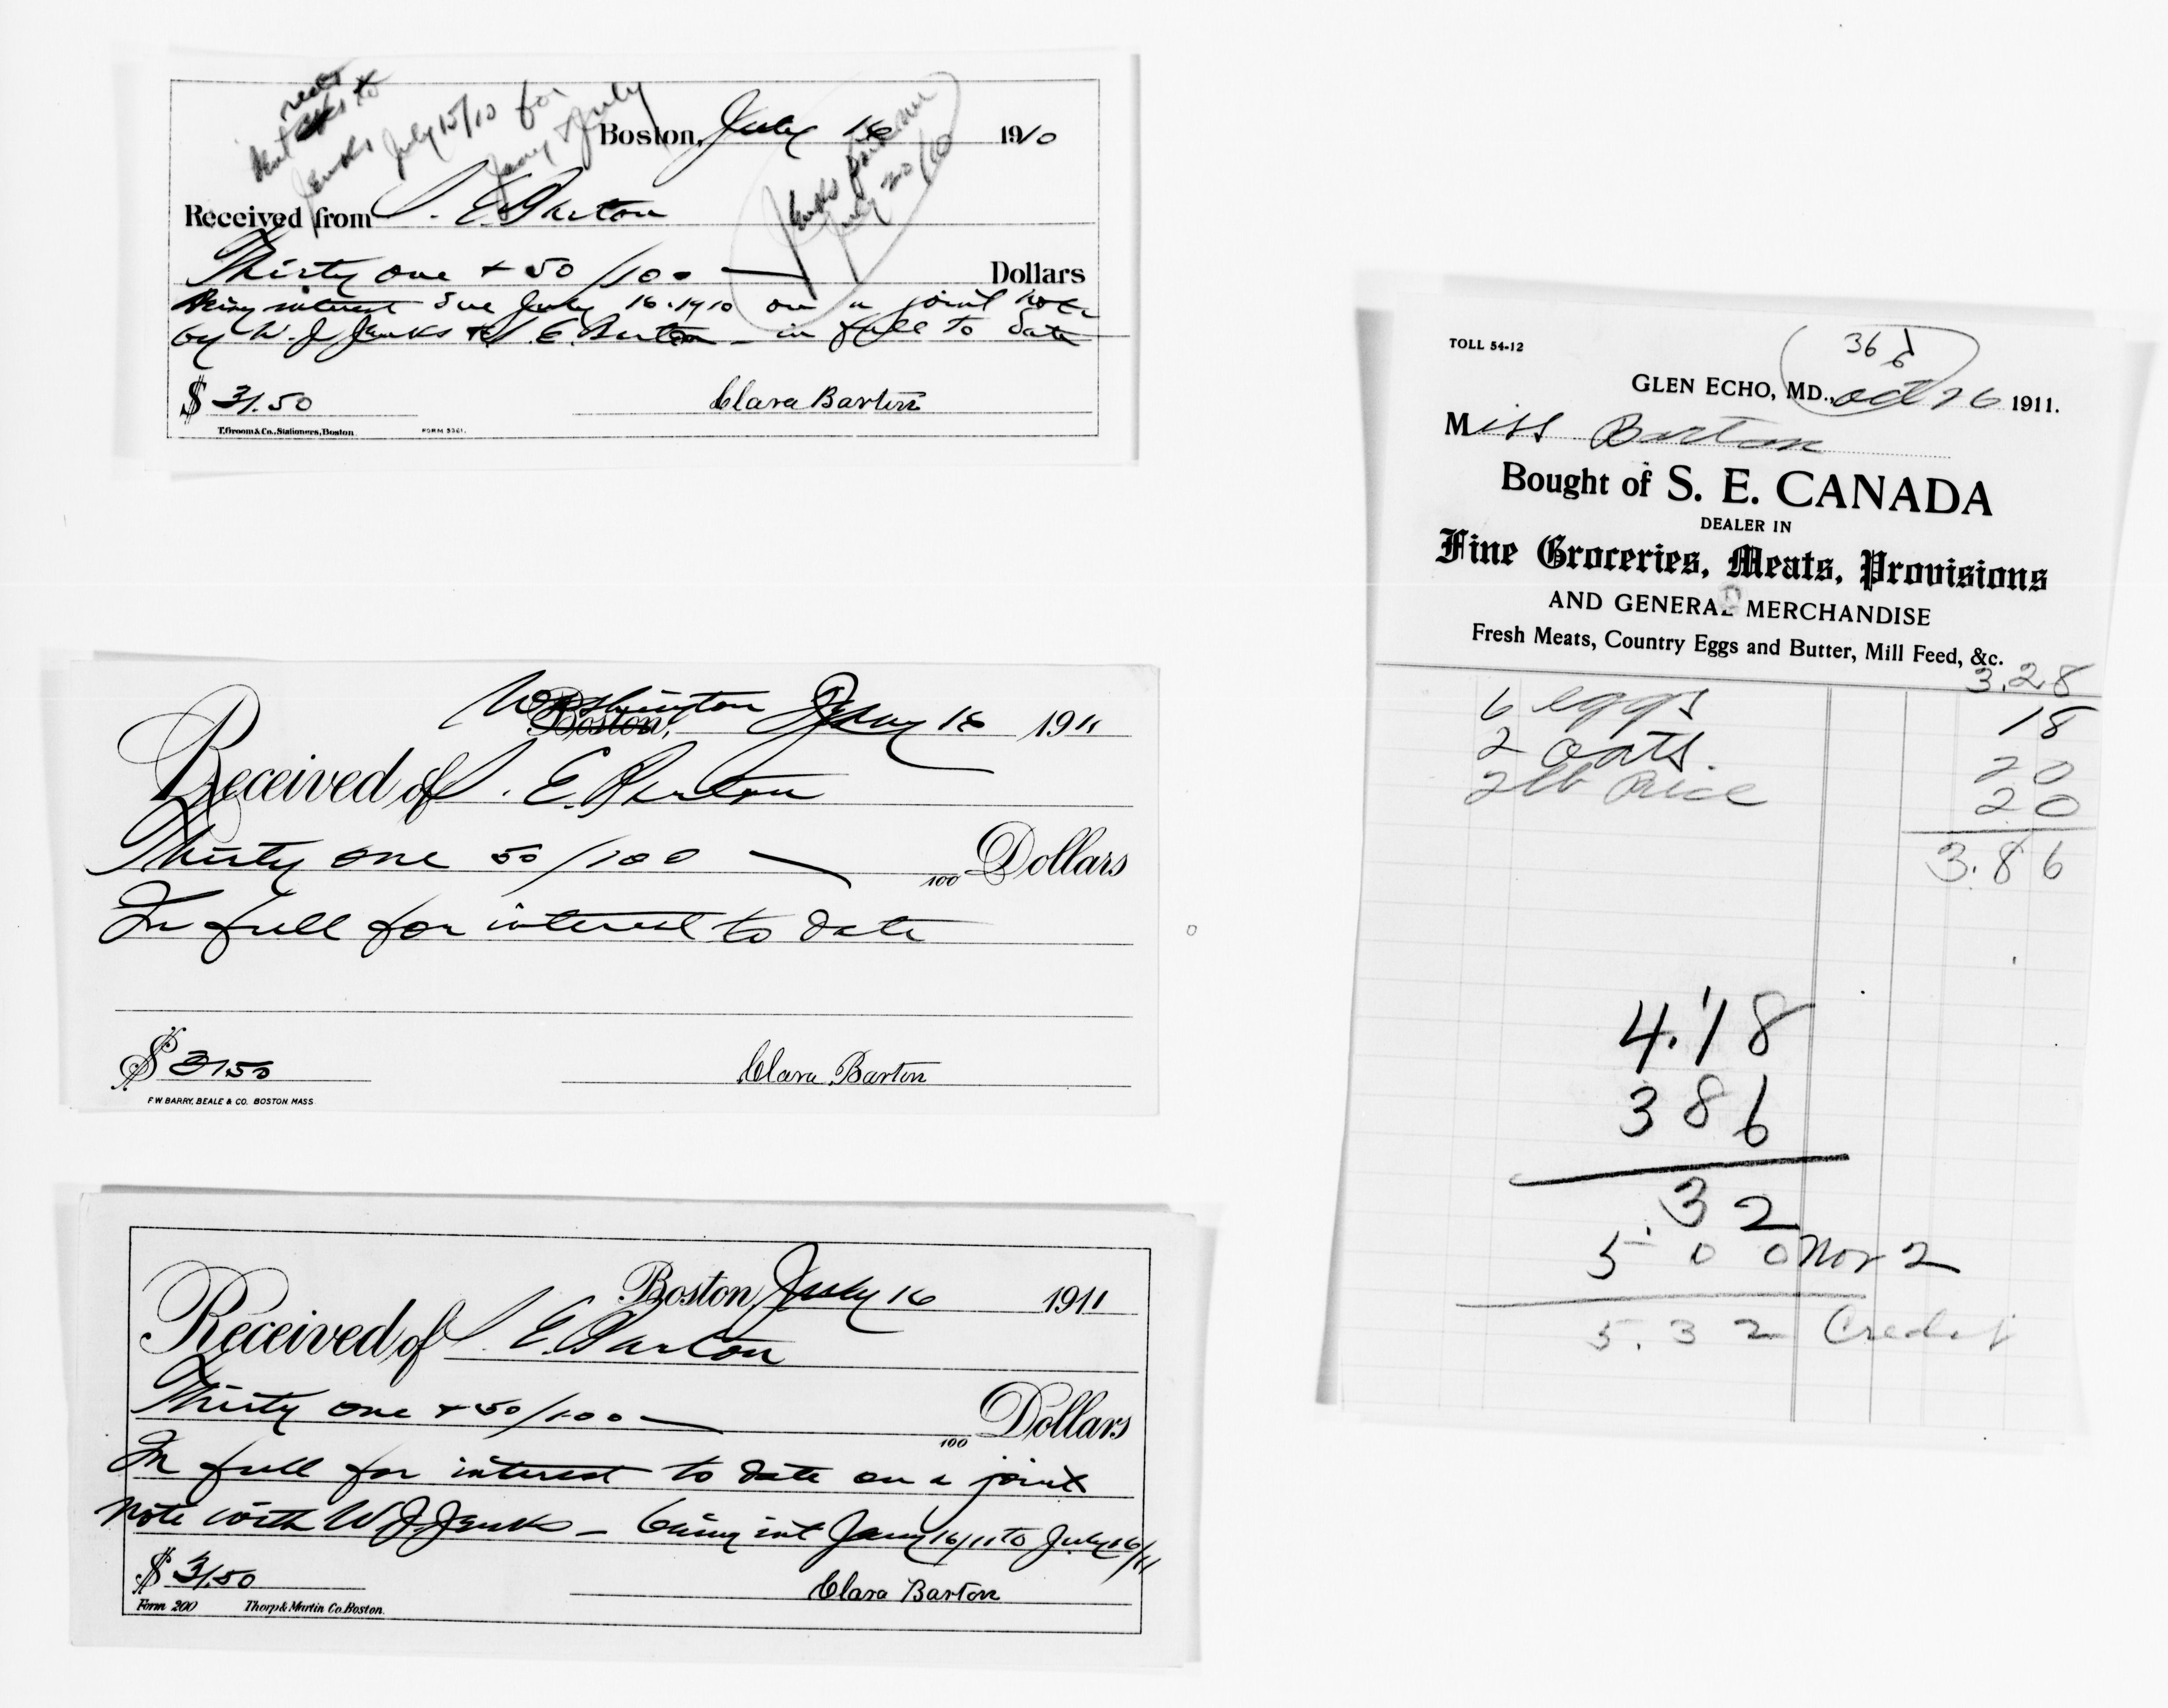 sent rec to
Jenks July 15/10 for
Jany & July
Boston, July 16 1910
Jenks paid me
July 20/10
Received from S. E. Barton
Thirty one + 50/100 — Dollars
Being interest due July 16-1910 on a joint note
by W. J. Jenks & S. E. Barton - in full to date
$ 31.50 Clara Barton
T. Groom & Co., Stationers, Boston. FORM 5361.
Washington Boston, Jany 16 1911
Received of S. E. Barton
Thirty one 50/100 — 100 Dollars
In full for interest to date
$ 31 50 Clara Barton
F W BARRY, BEALE & CO. BOSTON. MASS.
Boston, July 16 1911
Received of S. E. Barton
Thirty one + 50/100 — 100 Dollars
In full for interest to date on a joint
note with W J Jenks - being int Jany 16/11 to July 16/11
$ 31.50 Clara Barton
Form 200 Thorp & Martin Co. Boston.
36
TOLL 54-12
GLEN ECHO, MD., Oct 26 1911.
Miss Barton
Bought of S. E. CANADA
DEALER IN
Fine Groceries, Meats, Provisions
AND GENERAL MERCHANDISE
Fresh Meats, Country Eggs and Butter, Mill Feed, &c.
3.28
6 eggs 18
2 oats. 20
2 lb Rice 20
3.86
4.18
3 86
.32
5 00 Nov 2
5.32 Credit